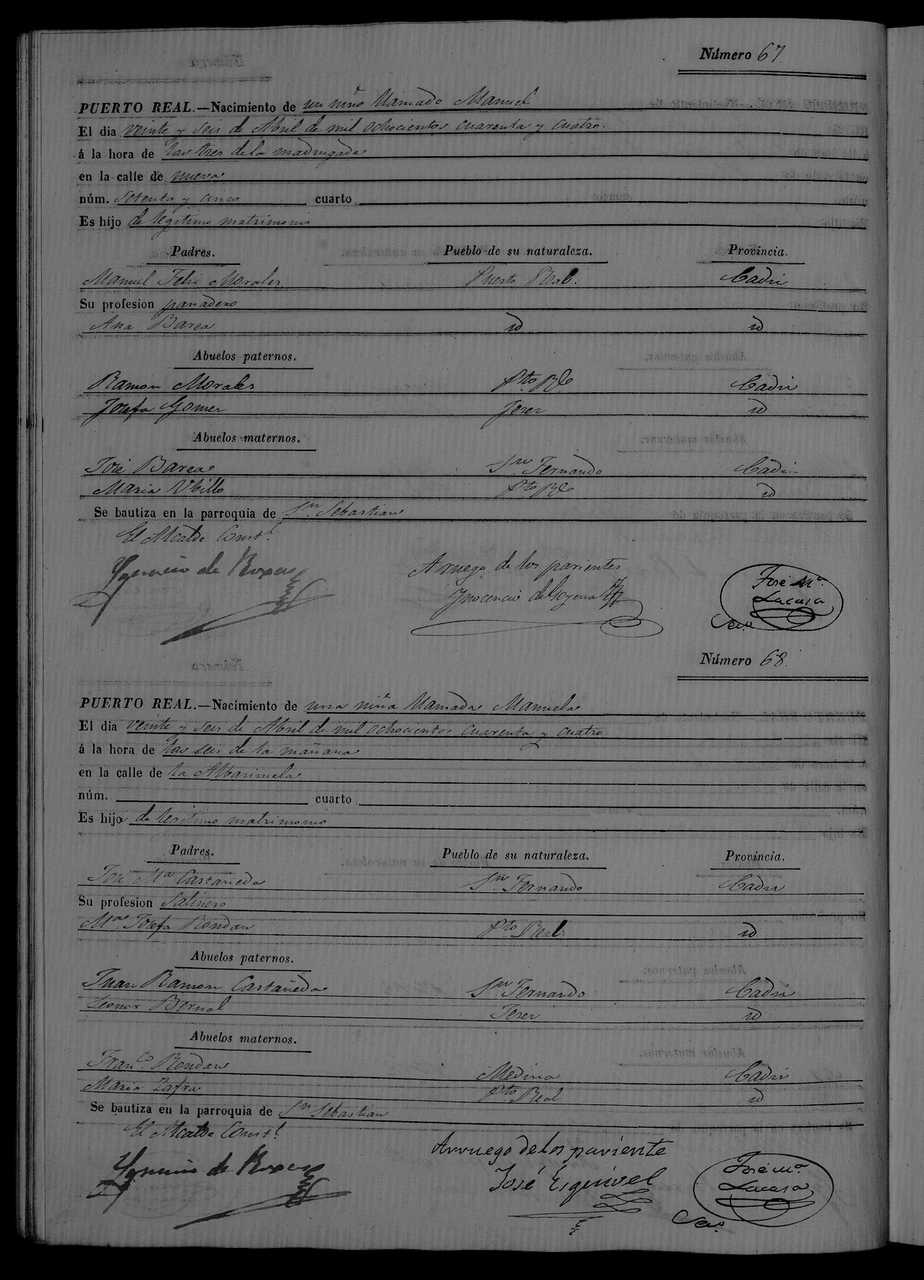 Número 67
PUERTO REAL.—Nacimiento de un niño llamado Manuel
El dia veinte y seis de Abril de mil ochocientos cuarenta y cuatro.
á la hora de las tres de la madrugada
en la calle de nueva
núm. setenta y cinco cuarto
Es hijo de legitimo matrimonio
Padres. Pueblo de su naturaleza. Provincia.
Manuel Felix Morales Puerto Real. Cadiz
Su profesion panadero
Ana Barea id id
Abuelos paternos.
Ramon Morales Pto Rl Cadiz
Josefa Gomez Jerez id
Abuelos maternos.
José Barea Sn Fernando Cadiz
Maria Pto Rl id
Se bautiza en la parroquia de Sn Sebastian
El Alcalde Const.l
Ygnacio de A ruego de los parientes José Ma.
Ynocencio Lacasa
Sec.o
Número 68.
PUERTO REAL.—Nacimiento de una niña llamada Manuela
El dia veinte y seis de Abril de mil ochocientos cuarenta y cuatro
á la hora de las seis de la mañana
en la calle de la
núm. cuarto
Es hijo de legitimo matrimonio
Padres. Pueblo de su naturaleza. Provincia.
José Ma Castañeda Sn Fernando Cadiz
Su profesion Salinero
Ma Josefa Rendon Pto Real id
Abuelos paternos.
Juan Ramon Castañeda Sn Fernando Cadiz
Leonor Bernal Jerez id
Abuelos maternos.
Franco Rendon Medina Cadiz
Maria Zafra Pto Real id
Se bautiza en la parroquia de Sn Sebastian
El Alcalde Const.l
Ygnacio de Arruego de los pariente José Ma.
José Esquivel Lacasa
Sec.o